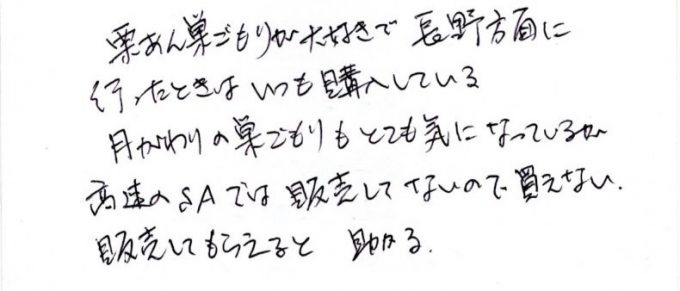 栗あん巣ごもりが大好きで 長野方面に
行ったときは いつも購入している
月がわりの巣ごもりもとても気になっているが
高速のSAでは販売してないので買えない.
販売してもらえると 助かる.